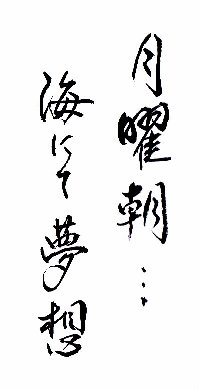 月曜朝…
海にて夢想